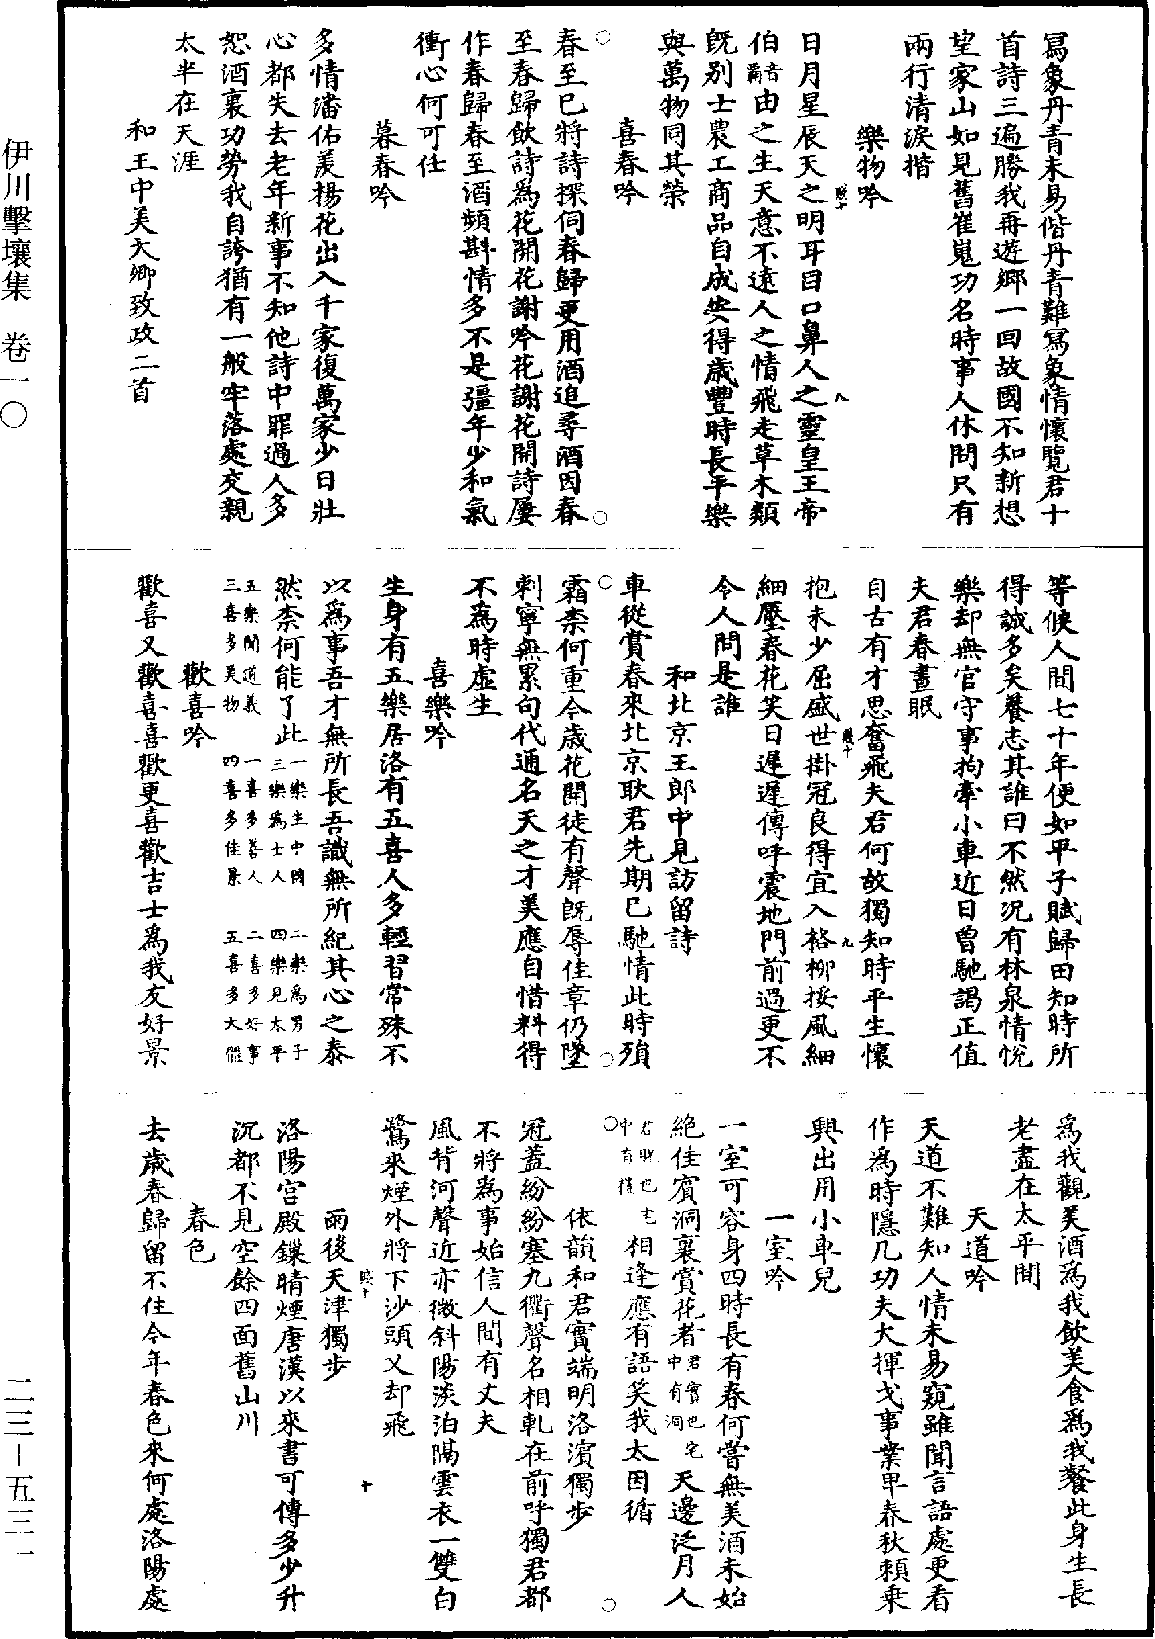 寫象丹青未易偕丹青難寫象情懷覽君十
首詩三遍勝我再遊鄉一回故國不知新想
望家山如見舊崔嵬功名時事人休問只有
兩行清淚揩
樂物吟
日月星辰天之明耳目口鼻人之靈皇王帝
伯音霸由之生天意不遠人之情飛走草木類
既别士農工商品自成安得歲豐時長平樂
與萬物同其榮
喜春吟
春至已將詩探伺春歸更用酒追尋酒因春
至春歸飲詩為花開花謝吟花謝花開詩屢
作春歸春至酒頻斟情多不是彊年少和氣
衝心何可任
暮春吟
多情潘佑羨楊花出入千家復萬家少日壯
心都失去老年新事不知他詩中罪過人多
恕酒裏功勞我自誇猶有一般牢落處交親
太半在天涯
和王中美大卿致政二首
等候人間七十年便如平子賦歸田知時所
得誠多矣養志其誰曰不然況有林泉情悅
樂却無官守事拘牽小車近日曾馳謁正值
夫君春晝眠
自古有才思奮飛夫君何故獨知時平生懷
抱未少屈盛世掛冠良得宜入格柳挼風細
細壓春花笑日遲遲傳呼震地門前過更不
令人問是誰
和北京王郎中見訪留詩
車從賞春來北京耿君先期已馳情此時殞
霜柰何重今歲花開徒有聲既辱佳章仍墜
刺寧無累句代通名天之才美應自惜料得
不為時虛生
喜樂吟
生身有五樂居洛有五喜人多輕習常殊不
以為事吾才無所長吾識無所紀其心之泰
然柰何能了此一樂生中國 二樂為男子
三樂為士人 四樂見太平
五樂聞道義 一喜多善人 二喜多好事
三喜多美物 四喜多佳景 五喜多大體
歡喜吟
歡喜又歡喜喜歡更喜歡吉士為我友好景
為我觀美酒為我飲美食為我餐此身生長
老盡在太平間
天道吟
天道不難知人情未易窺雖聞言語處更看
作為時隱几功夫大揮戈事業卑春秋賴乘
興出用小車兒
一室吟
一室可容身四時長有春何嘗無美酒未始
絕佳賓洞裏賞花者君實也宅中有洞天邊泛月人
君貺也宅中有樓相逢應有語笑我太因循
依韻和君實端明洛濱獨步
冠蓋紛紛塞九衢聲名相軋在前呼獨君都
不將為事始信人間有丈夫
風背河聲近亦微斜陽淡泊隔雲衣一雙白
鷺來煙外將下沙頭又却飛
雨後天津獨步
洛陽宮殿鏁晴煙唐漢以來書可傳多少升
沉都不見空餘四面舊山川
春色
去歲春歸留不住今年春色來何處洛陽處
伊川擊壤集 卷一〇
二三－五三一